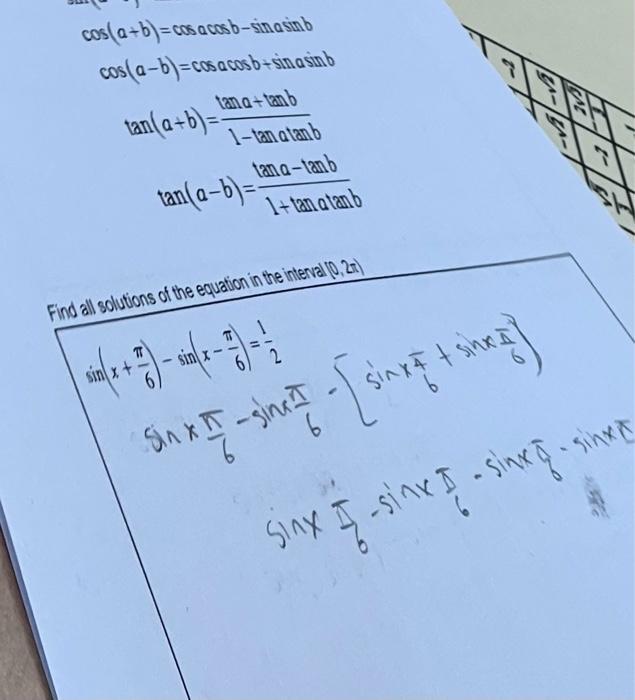 cos(a+b)=cosacosb-sinasinb
cos(a-b)=cosacosb+sinasinb
tan(a+b)=\frac{tana+tanb}{1-tanatanb}
tan(a-b)=\frac{tana-tanb}{1+tanatanb}
Find all solutions of the equation in the interval [0, 2π)
sin(x+\frac{π}{6})-sin(x-\frac{π}{6})=\frac{1}{2}
sinx\frac{π}{6}-sinx\frac{π}{6}-[sinx\frac{π}{6}+sinx\frac{π}{6}]
sinx\frac{π}{6}-sinx\frac{π}{6}-sinx\frac{π}{6}-sinxπ